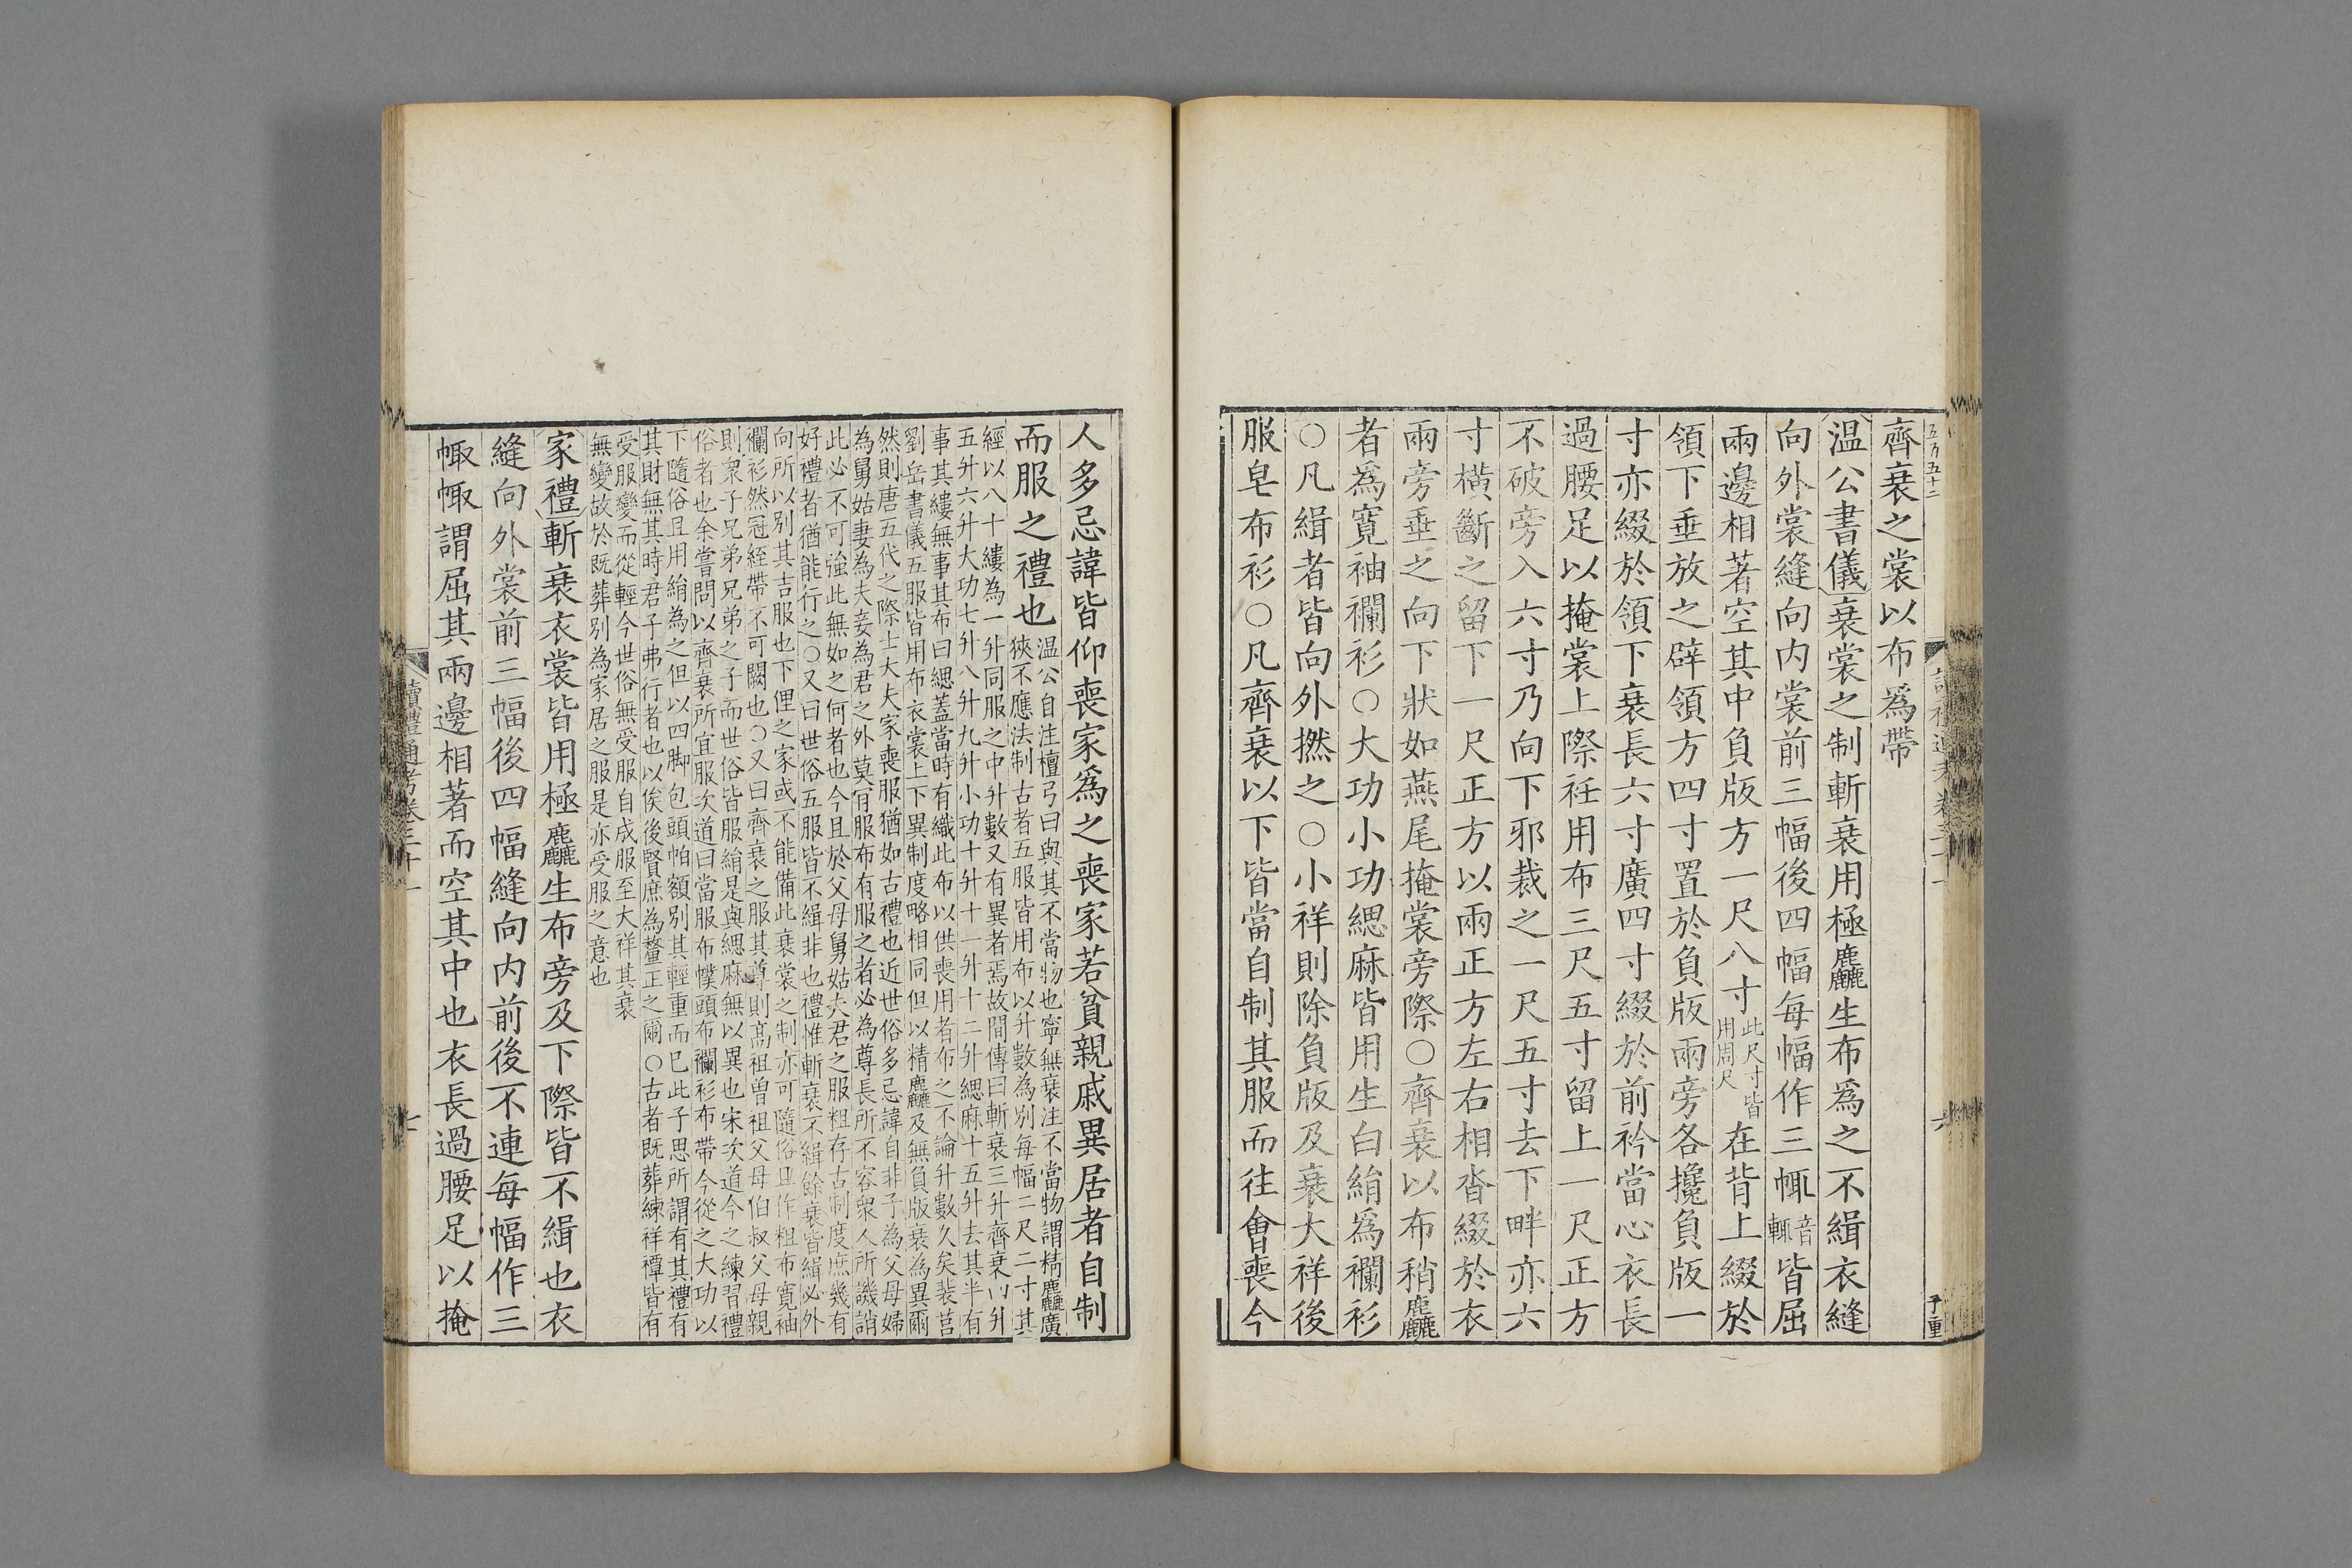 齊衰之裳以布爲帶
温公書儀衰裳之制斬衰用極麤生布爲之不緝衣縫
向外裳縫向内裳前三幅後四幅每幅作三㡇音輒皆屈
兩邊相著空其中負版方一尺八寸此尺寸皆用周尺在背上綴於
領下垂放之辟領方四寸置於負版兩旁各攙負版一
寸亦綴於領下衰長六寸廣四寸綴於前衿當心衣長
過腰足以掩裳上際衽用布三尺五寸留上一尺正方
不破旁入六寸乃向下邪裁之一尺五寸去下畔亦六
寸橫斷之留下一尺正方以兩正方左右相沓綴於衣
兩旁垂之向下狀如燕尾掩裳旁際○齊衰以布稍麤
者爲寬袖襴衫○大功小功緦麻皆用生白絹爲襴衫
○凡緝者皆向外撚之○小祥則除負版及衰大祥後
服皂布衫○凡齊衰以下皆當自制其服而往會喪今
人多忌諱皆仰喪家爲之喪家若貧親戚異居者自制
而服之禮也
温公自注檀弓曰與其不當物也寧無衰注不當物謂精麤廣
狹不應法制古者五服皆用布以升數為别每幅二尺二寸其
經以八十縷為一升同服之中升數又有異者焉故間傳曰斬衰三升齊衰四升
五升六升大功七升八升九升小功十升十一升十二升緦麻十五升去其半有
事其縷無事其布曰緦蓋當時有織此布以供喪用者布之不論升數久矣裴莒
劉岳書儀五服皆用布衣裳上下異制度略相同但以精麤及無負版衰為異爾
然則唐五代之際士大夫家喪服猶如古禮也近世俗多忌諱自非子為父母婦
為舅姑妻為夫妾為君之外莫肎服布有服之者必為尊長所不容衆人所譏誚
此必不可強此無如之何者也今且於父母舅姑夫君之服粗存古制度庶幾有
好禮者猶能行之○又曰世俗五服皆不緝非也禮惟斬衰不緝餘衰皆緝必外
向所以别其吉服也下俚之家或不能備此衰裳之制亦可隨俗且作粗布寛袖
襴衫然冠絰帶不可闕也○又曰齊衰之服其尊則髙祖曽祖父母伯叔父母親
則衆子兄弟兄弟之子而世俗皆服絹是與緦麻無以異也宋次道今之練習禮
俗者也余嘗問以齊衰所宜服次道曰當服布幞頭布襴衫布帶今從之大功以
下隨俗且用絹為之但以四脚包頭帕額别其輕重而已此子思所謂有其禮有
其財無其時君子弗行者也以俟後賢庶為釐正之爾○古者既葬練祥禫皆有
受服變而從輕今世俗無受服自成服至大祥其衰
無變故於既葬别為家居之服是亦受服之意也
家禮斬衰衣裳皆用極麤生布旁及下際皆不緝也衣
縫向外裳前三幅後四幅縫向内前後不連每幅作三
㡇㡇謂屈其兩邊相著而空其中也衣長過腰足以掩
讀禮通考卷三十一